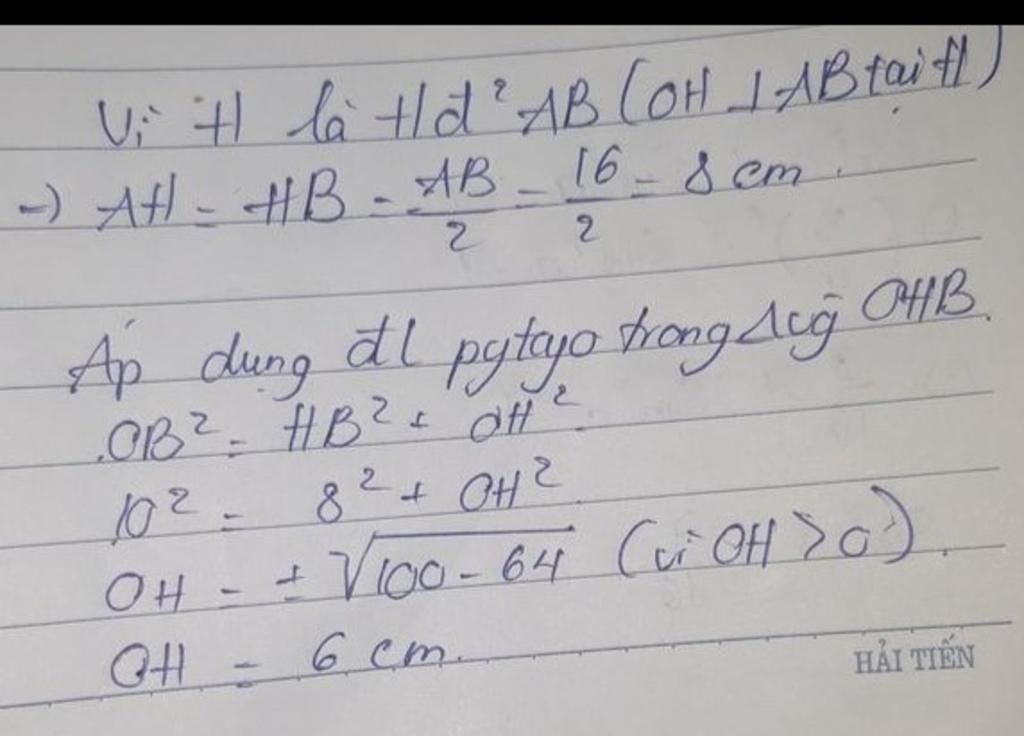 Vì H là Hđ² AB (OH ⊥ AB tại H)
→) AH = HB = AB/2 = 16/2 = 8 cm.
Áp dụng đl pytayo trong Δcg̃ OHB.
OB² = HB² + OH²
10² = 8² + OH²
OH = ± √100 - 64 (vì OH > 0).
OH = 6 cm.
HẢI TIẾN